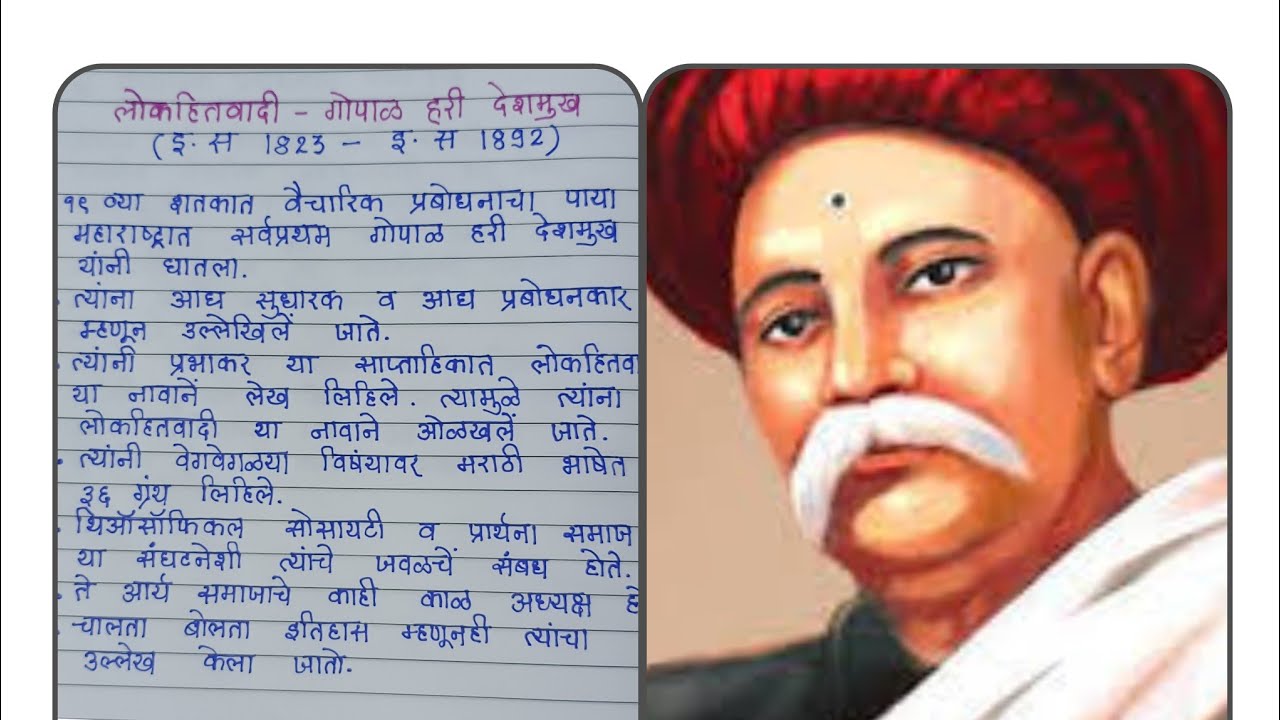 लोकहितवादी - गोपाळ हरी देशमुख
(इ. स 1823 - इ. स 1892)
१९ व्या शतकात वैचारिक प्रबोधनाचा पाया
महाराष्ट्रात सर्वप्रथम गोपाळ हरी देशमुख
यांनी घातला.
त्यांना आद्य सुधारक व आद्य प्रबोधनकार
म्हणून उल्लेखिलें जाते.
त्यांनी प्रभाकर या साप्ताहिकात लोकहितवा
या नावानें लेख लिहिले. त्यामुळे त्यांना
लोकहितवादी या नावाने ओळखलें जाते.
त्यांनी वेगवेगळया विषंयावर मराठी भाषेत
३६ ग्रंथ लिहिले.
थिऑसॉफिकल सोसायटी व प्रार्थना समाज
या संघटनेशी त्यांचे जवळचें संबध होते.
ते आर्य समाजाचे काही काळ अध्यक्ष हो
चालता बोलता इतिहास म्हणूनही त्यांचा
उल्लेख केला जातो.